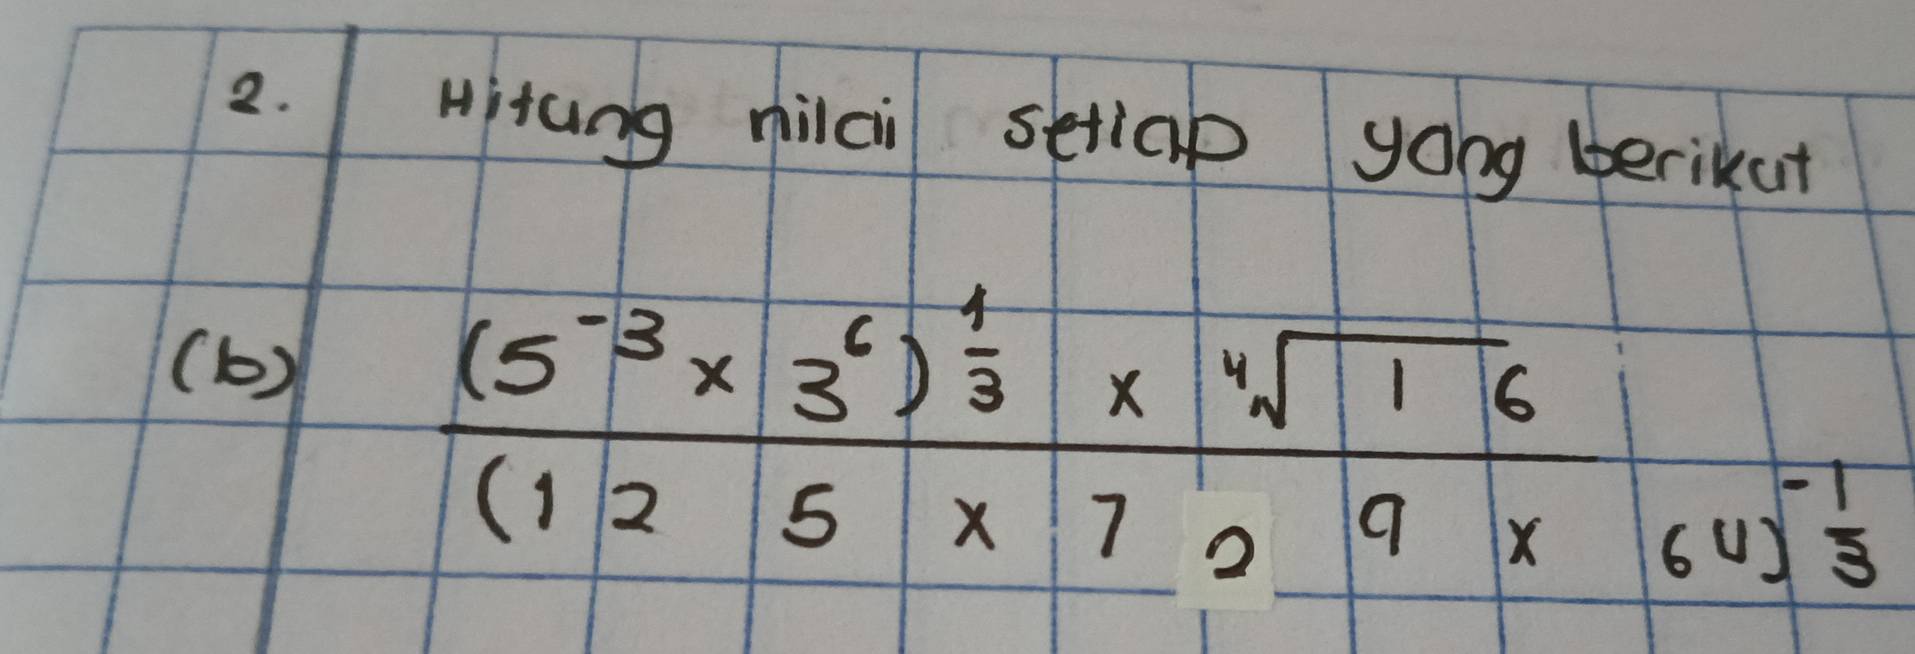 2. Hitung nilai setiap yang berikut
(b) (5⁻³ × 3⁶)^(1/3) × ⁴√16
(125 × 729 × 64)^(-1/3)